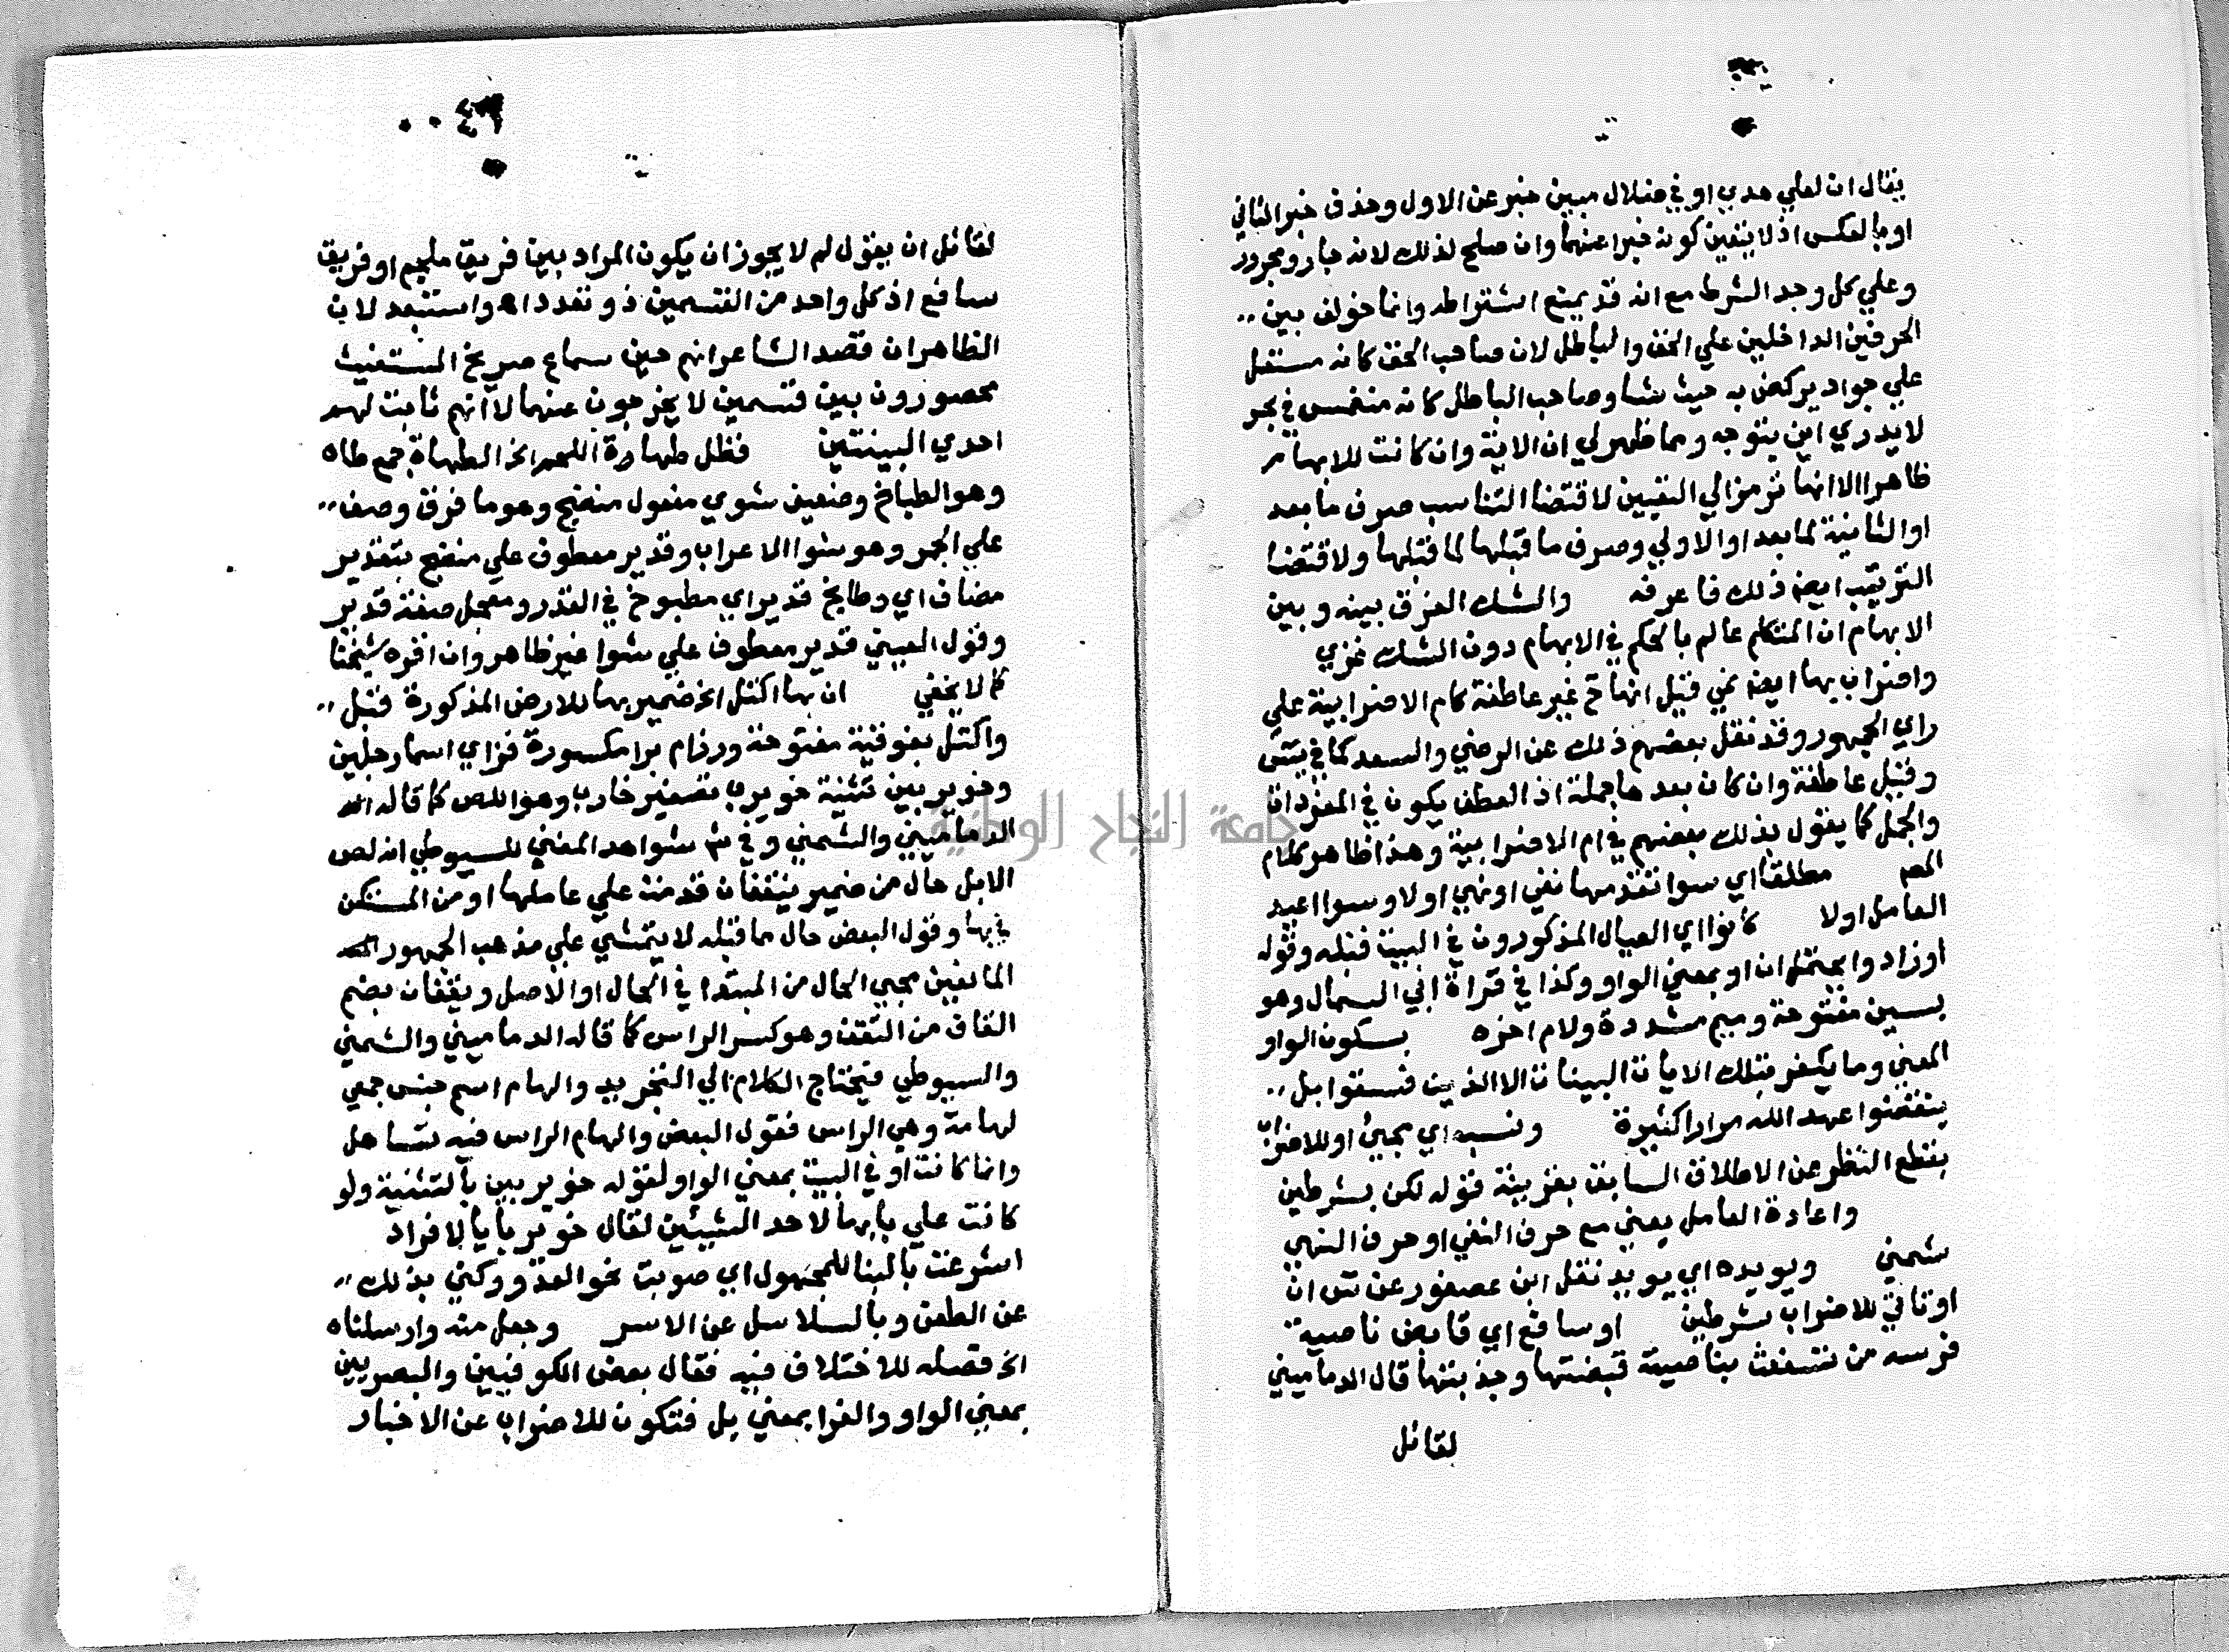 يقال ان لعلي هدي او في ضلال مبين خبر عن الاول وحذف خبر الثاني
او بالعكس اذ لا يتعين كونه خبرا عنهما وان صلح لذلك لانه جار ومجرور
وعلي كل وجد الشرط مع انه قد يمنع اشتراطه وانما خولف بين
الحرفين الداخلين علي الحق والباطل لان صاحب الحق كانه مستعل
علي جواد يركض به حيث شا وصاحب الباطل كانه منغمس في بحر
لا يدري اين يتوجه ومما ظهر لي ان الاية وان كانت للابهام
ظاهرا الا انها ترمز الي التعيين لاقتضا التناسب صرف ما بعد
او الثانية لما بعد او الاولي وصرف ما قبلها لما قبلها ولاقتضا
الترتيب ايضا ذلك فاعرفه والشك الفرق بينه وبين
الابهام ان المتكلم عالم بالحكم في الابهام دون الشك غزي
واضراب بها ايضا نمي قيل انها ح غير عاطفة كام الاضرابية علي
راي الجمهور وقد نقل بعضهم ذلك عن الرضي والسعد كما في يتس
وقيل عاطفة وان كان بعدها جملة اذ العطف يكون في المفردات
والجمل كما يقول بذلك بعضهم في ام الاضرابية وهذا ظاهر كلام
المص مطلقا اي سوا تقدمها نفي او نهي او لا وسوا اعيد
العامل او لا كانوا اي العيال المذكورون في البيت قبله وقوله
او زادوا يحتمل ان او بمعني الواو وكذا في قراة ابي السمال وهو
بسين مفتوحة وميم مشددة ولام اخره بسكون الواو
المعني وما يكفر بتلك الايات البينات الا الذين فسقوا بل
ينقضوا عهد الله مرارا كثيرة ونسبه اي مجيئ او للاضراب
بقطع النظر عن الاطلاق السابق بقرينة قوله لكن بشرطين
واعادة العامل يعني مع حرف النفي او حرف النهي
شمني ويويده اي يويد نقل ابن عصفور عن س ان
او تاتي للاضراب بشرطين او سافع اي قابض ناصية
فرسه من سفعت بناصيته قبضتها وجذبتها قال الدماميني
لقائل
٤٦
لقائل ان يقول لم لا يجوز ان يكون المراد بين فريق ملجم او فريق
سافع اذ كل واحد من القسمين ذو تعدد اه واستبعد لان
الظاهر ان قصد الشاعر انهم حين سماع صريخ المستغيث
محصورون بين قسمين لا يخرجون عنهما لا انهم ثابت لهم
احدي البينتين فظل طهاة اللحم الخ الطهاة جمع طاه
وهو الطباخ وضعيف شوي مفعول منضج وهو ما فرق وصف
علي الجمر وهو شوا الاعراب وقدير معطوف علي منضج بتقدير
مضاف اي وطابخ قدير اي مطبوخ في القدر ومعجل صفة قدير
وقول العيني قدير معطوف علي شوا غير ظاهر وان اقره شيخنا
كما لا يخفي ان بها اكتل الخ ضمير بها للارض المذكورة قبل
واكتل بفوقية مفتوحة ورزام برا مكسورة فزاي اسما رجلين
وخويربين تثنية خويرب تصغير خارب وهو اللص كما قاله
الدماميني والشمني وفي ش شواهد المغني للسيوطي انه لص
الابل حال من ضمير ينقفان قدمت علي عاملها او من المستكن
في بها وقول البعض حال مما قبله لا يتمشي علي مذهب الجمهور
المانعين مجيى الحال من المبتدا في الحال او الاصل وينقفان بضم
القاف من النقف وهو كسر الراس كما قاله الدماميني والشمني
والسيوطي فيحتاج الكلام الي التجريد والهام اسم جنس جمعي
لهامة وهي الراس فقول البعض والهام الراس فيه تساهل
وانما كانت او في البيت بمعني الواو لقوله خويربين بالتثنية ولو
كانت علي بابها لاحد الشيئين لقال خويربا بالافراد
اشرعت بالبنا للمجهول اي صوبت نحو العدو وكني بذلك
عن الطعن وبالسلاسل عن الاسر وجعل منه وارسلناه
الخ فصله للاختلاف فيه فقال بعض الكوفيين والبصريين
بمعني الواو والفرا بمعني بل فتكون للاضراب عن الاخبار
جامعة النجاح الوطنية